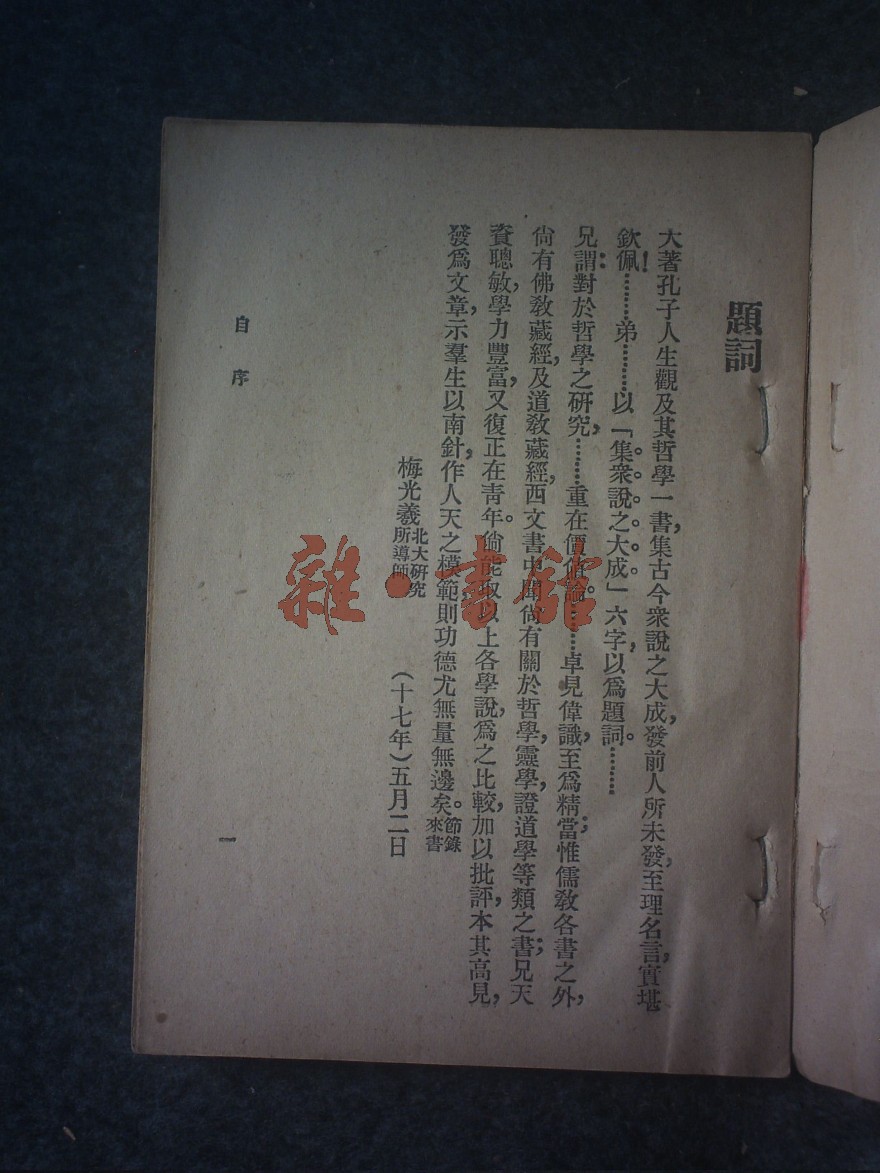 題詞
大著孔子人生觀及其哲學一書,集古今衆說之大成,發前人所未發,至理名言,實堪
欽佩!………弟………以「集衆說之大成」六字,以爲題詞。………
兄謂:對於哲學之研究,………重在價值論。………卓見偉識,至爲精當;惟儒敎各書之外,
尙有佛敎藏經,及道敎藏經,西文書中聞尙有關於哲學,靈學,證道學等類之書;兄天
資聰敏,學力豐富,又復正在青年。倘能取以上各學說,爲之比較,加以批評,本其高見,
發爲文章,示羣生以南針,作人天之模範,則功德尤無量無邊矣。節錄來書
梅光羲北大研究所導師
(十七年)五月二日
自序
一
雜·書館